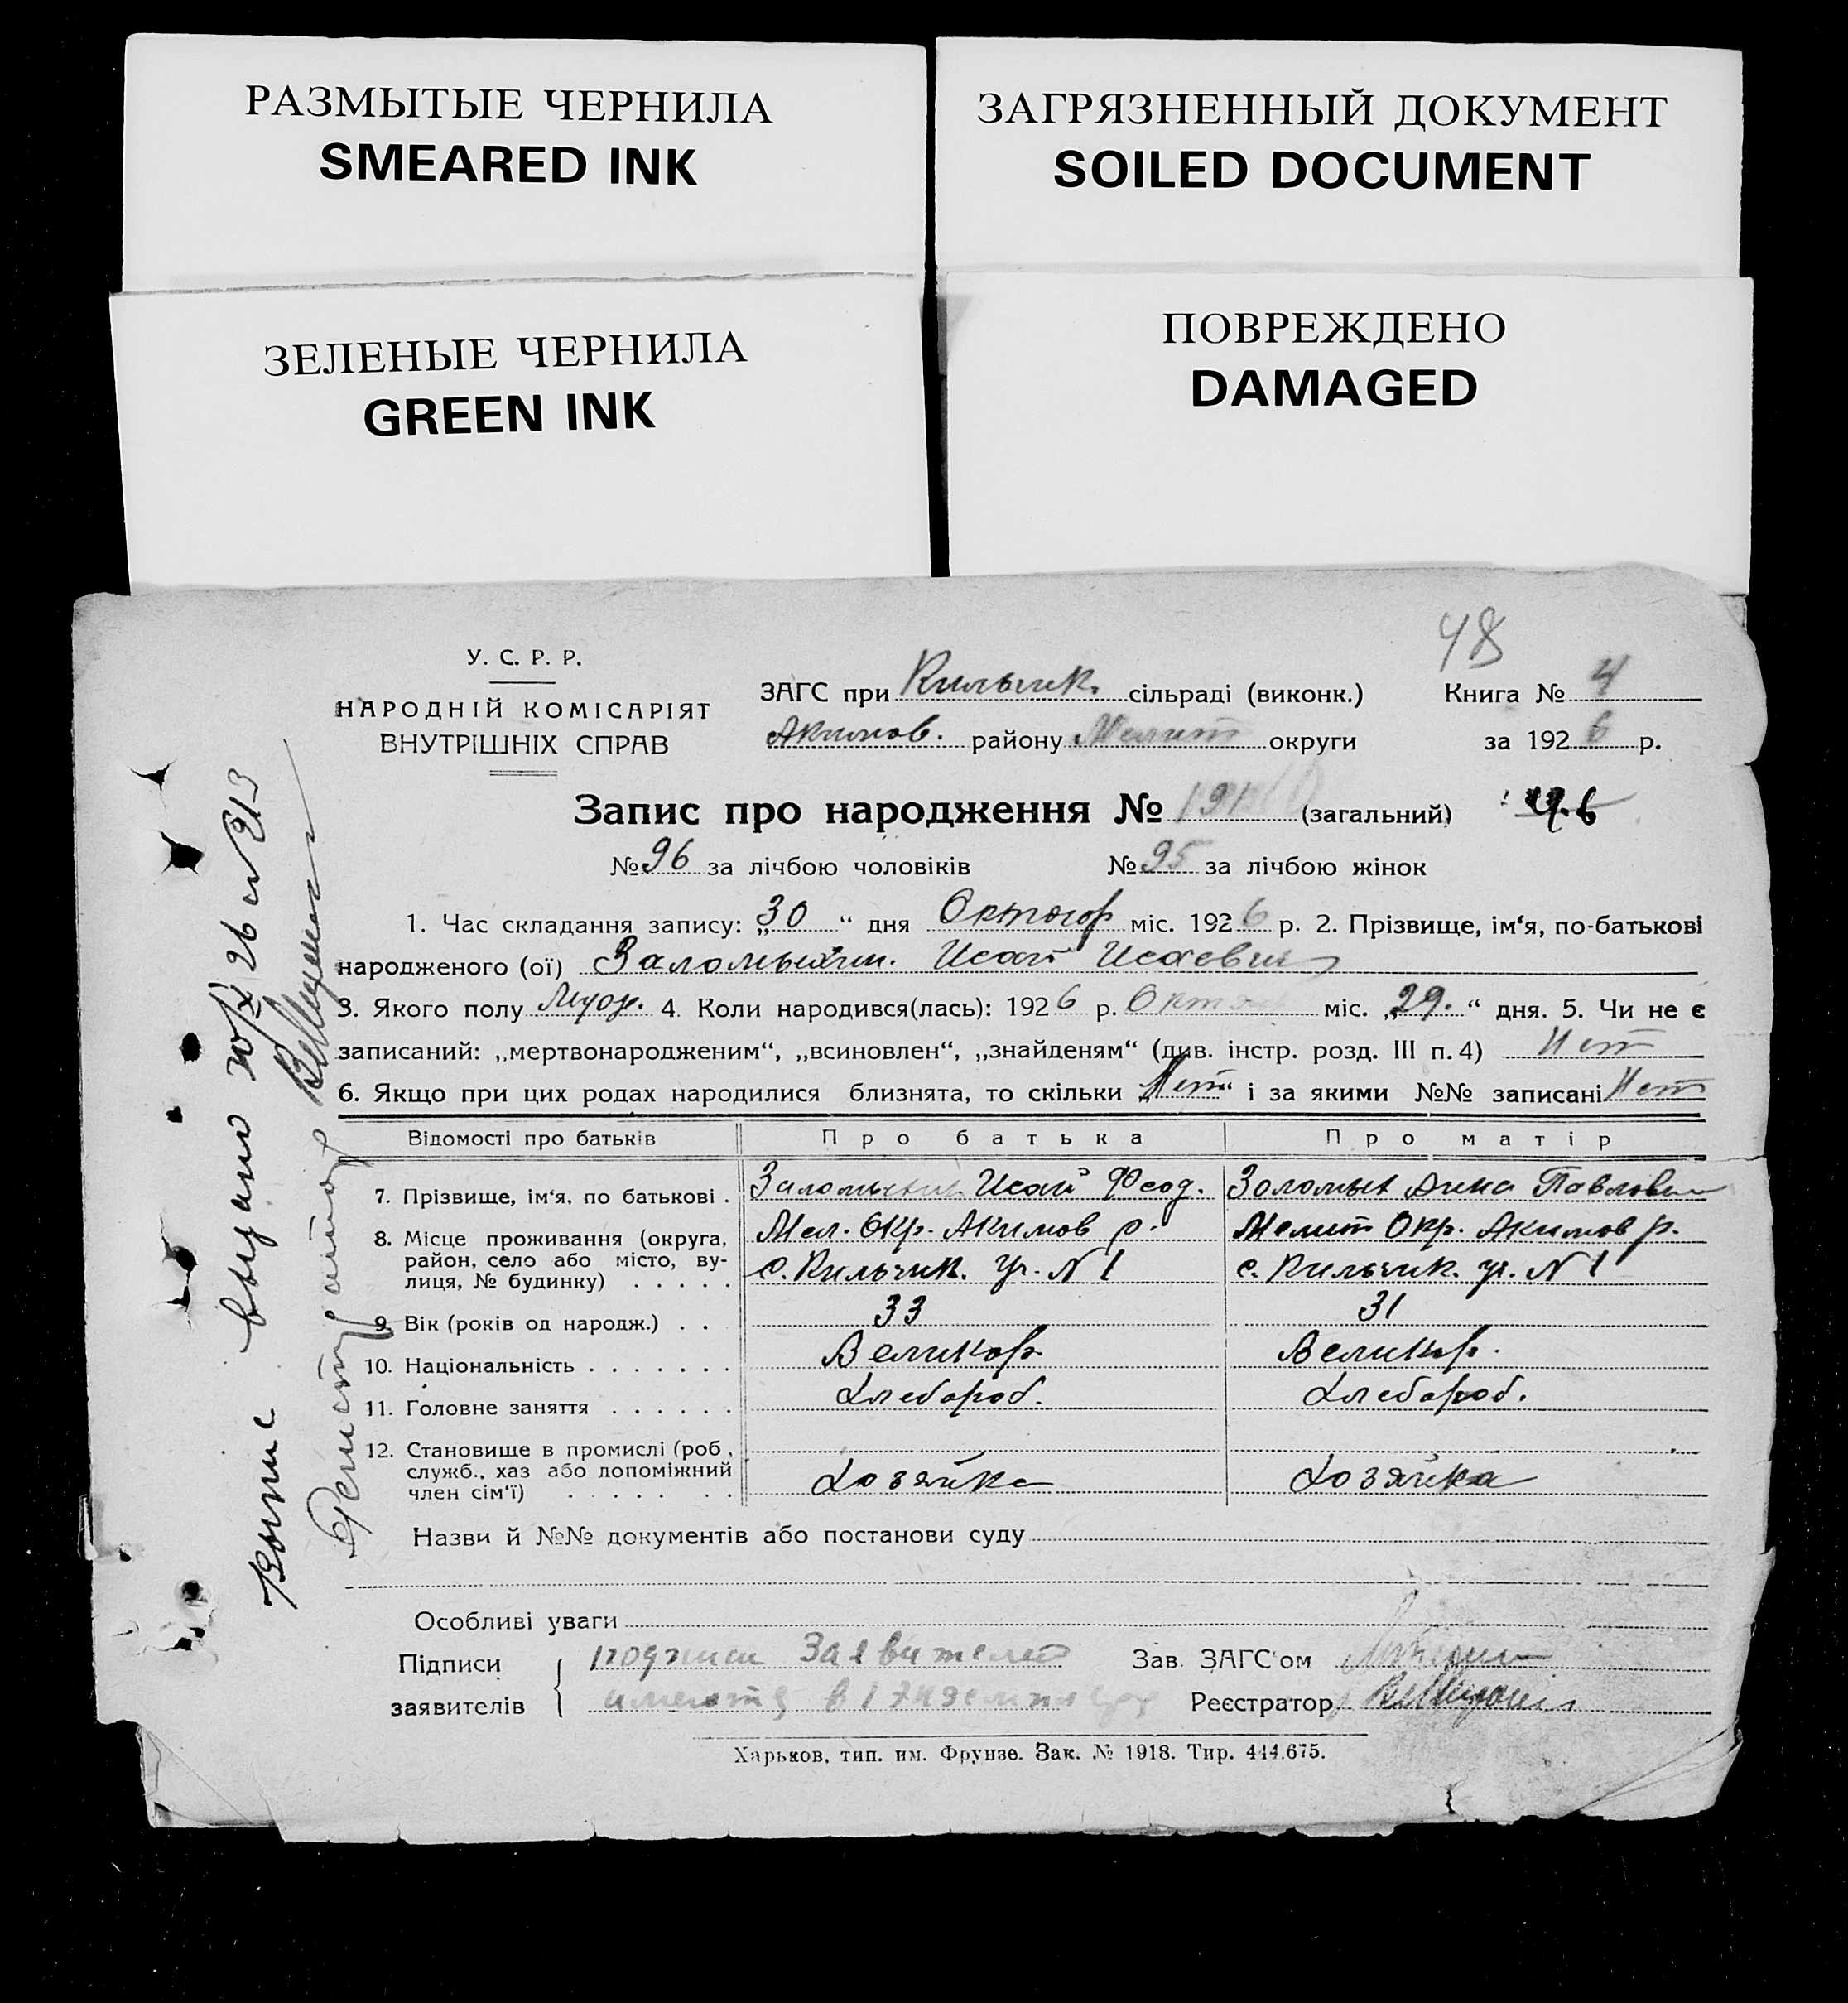 РАЗМЫТЫЕ ЧЕРНИЛА
SMEARED INK
ЗАГРЯЗНЕННЫЙ ДОКУМЕНТ
SOILED DOCUMENT
ЗЕЛЕНЫЕ ЧЕРНИЛА
GREEN INK
ПОВРЕЖДЕНО
DAMAGED
48
У. С. Р. Р.
НАРОДНІЙ КОМІСАРІЯТ
ВНУТРІШНІХ СПРАВ
ЗАГС при Кильчик. сільраді (виконк.) Книга № 4
Акимов. району Мелит округи за 1926 р.
Запис про народження № 191 (загальний)
№ 96 за лічбою чоловіків № 95 за лічбою жінок
1. Час складання запису: „30“ дня Октября міс. 1926 р. 2. Прізвище, ім‘я, по-батькові
народженого (ої) Исай Исаевич
3. Якого полу Муж. 4. Коли народився(лась): 1926 р. Октяб міс. „29.“ дня. 5. Чи не є
записаний: „мертвонародженим“, „всиновлен“, „знайденям“ (див. інстр. розд. III п. 4) Нет
6. Якщо при цих родах народилися близнята, то скільки „Нет“ і за якими №№ записані Нет
Відомості про батьків Про батька Про матір
7. Прізвище, ім‘я, по батькові . Исай Феод. Павлов
8. Місце проживання (округа, Мел. Окр. Акимов р. Мелит Окр. Акимов р.
район, село або місто, ву-
лиця, № будинку) . . . . . с. Кильчик. уч. N 1 с. Кильчик. уч. N 1
9. Вік (років од народж.) . . 33 31
10. Національність . . . . . . . Великор. Великор.
11. Головне заняття . . . . . . Хлебороб. Хлебороб.
12. Становище в промислі (роб.,
служб., хаз або допоміжний
член сім‘ї) . . . . . . . Хозяйка Хозяйка
Назви й №№ документів або постанови суду
Особливі уваги
Підписи подписи Заявителей Зав. ЗАГС‘ом
заявителів имеются в 1 экземпляре Реєстратор
Харьков, тип. им. Фрунзе. Зак. № 1918. Тир. 444.675.
выдано